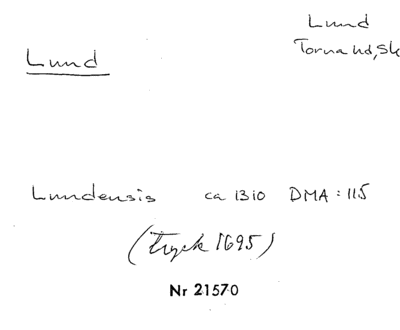 Lund
Lund
Torna hd, Sk
Lundensis ca 1310 DMA: 115
(tryck 1695)
Nr 21570